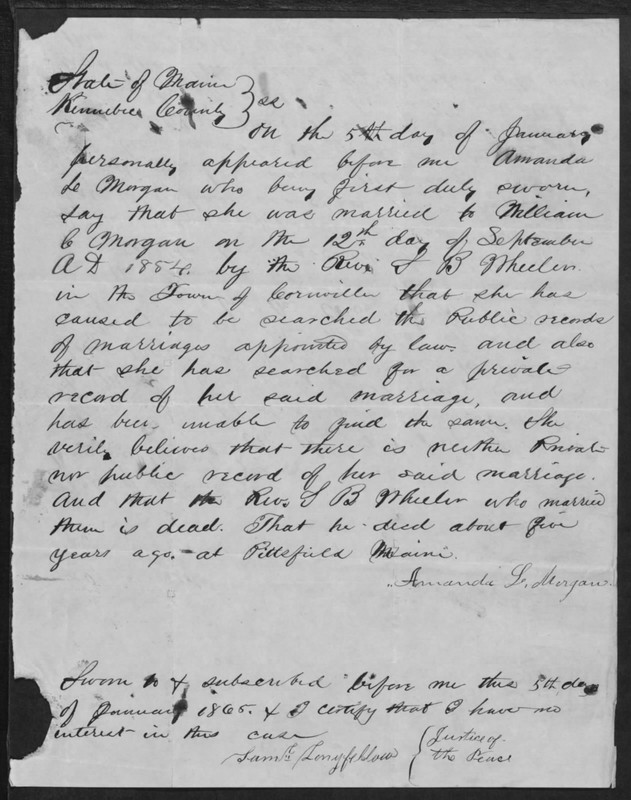 State of Maine
Kennebec County } ss
On the 5th day of January
personally appeared before me Amanda
L Morgan who being first duly sworn,
say that she was married to William
C Morgan on the 12th day of September
A D 1854. by the Rev. S B Wheeler
in the Town of Cornville that she has
caused to be searched the Public records
of marriages appointed by law. and also
that she has searched for a private
record of her said marriage, and
has been unable to find the same. She
verily believes that there is neither Private
nor public record of her said marriage.
And that the Rev. S B Wheeler who married
them is dead. That he died about five
years ago. at Pittsfield Maine.
Amanda L. Morgan.
Sworn to & subscribed before me this 5th day
of January 1865. & I certify that I have no
interest in this case
Saml. Longfellow { Justice of
the Peace